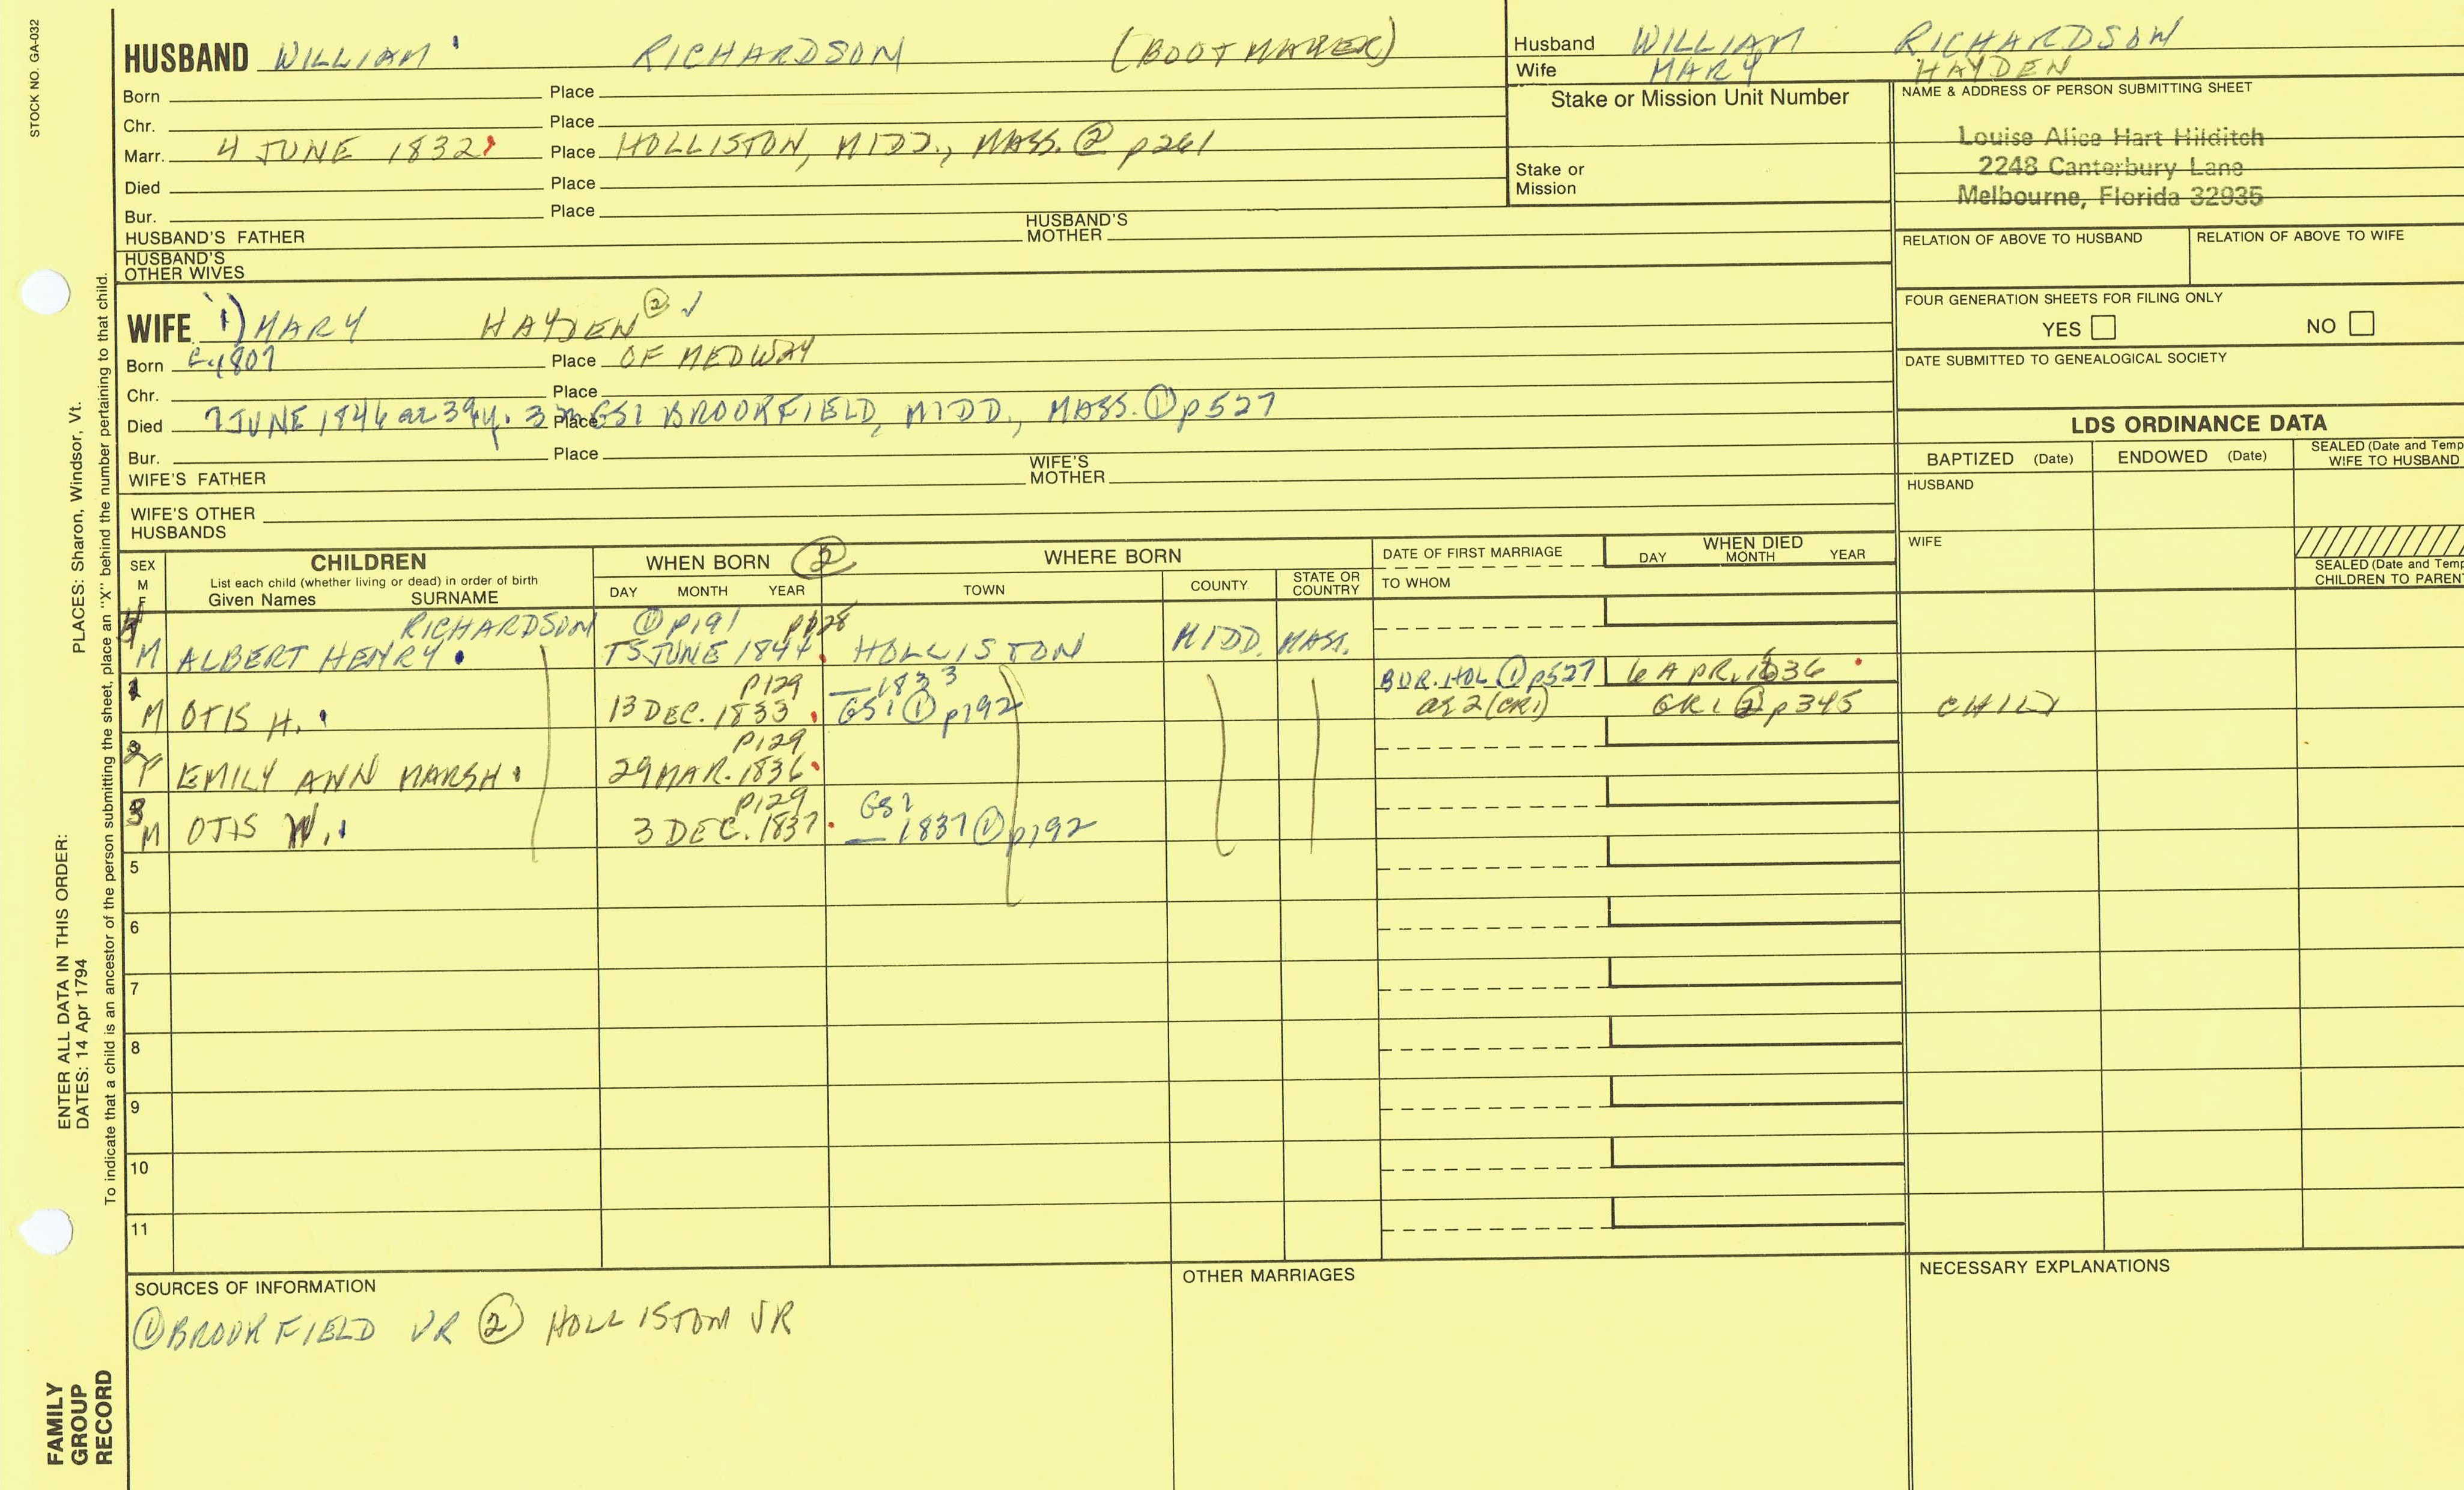 STOCK NO. GA-032
HUSBAND WILLIAM RICHARDSON (BOOTMAKER)
Born Place
Chr. Place
Marr. 4 JUNE 1832 Place HOLLISTON, MIDD., MASS. ② p261
Died Place
Bur. Place
HUSBAND'S FATHER HUSBAND'S MOTHER
HUSBAND'S OTHER WIVES
Husband WILLIAM RICHARDSON
Wife MARY HAYDEN
Stake or Mission Unit Number
Stake or Mission
NAME & ADDRESS OF PERSON SUBMITTING SHEET
Louise Alice Hart Hilditch
2248 Canterbury Lane
Melbourne, Florida 32935
RELATION OF ABOVE TO HUSBAND RELATION OF ABOVE TO WIFE
FOUR GENERATION SHEETS FOR FILING ONLY
YES NO
DATE SUBMITTED TO GENEALOGICAL SOCIETY
WIFE 1) MARY HAYDEN ② ✓
Born c1807 Place OF MEDWAY
Chr. Place
Died 7 JUNE 1846 ae 39y. 3 Place GS1 BROOKFIELD, MIDD., MASS. ① p527
Bur. Place
WIFE'S FATHER WIFE'S MOTHER
WIFE'S OTHER HUSBANDS
LDS ORDINANCE DATA
BAPTIZED (Date) ENDOWED (Date) SEALED (Date and Temp
WIFE TO HUSBAND
HUSBAND
WIFE
SEALED (Date and Temp
CHILDREN TO PAREN
SEX M F CHILDREN WHEN BORN ② WHERE BORN DATE OF FIRST MARRIAGE WHEN DIED
List each child (whether living or dead) in order of birth
Given Names SURNAME DAY MONTH YEAR TOWN COUNTY STATE OR COUNTRY TO WHOM DAY MONTH YEAR
RICHARDSON ① p191 p128
M ALBERT HENRY. JUNE 1844. HOLLISTON MIDD. MASS.
1 P129 —1833 BUR. HOL ① p527 6 APR. 1836
M OTIS H. 13 DEC. 1833. GS1 ① p192 ae 2 (CR1) CR1 ② p345 CHILD
2 P129
F EMILY ANN MARSH. 29 MAR. 1836.
3 P129 GS1
M OTIS W. 3 DEC. 1837. —1837 ① p192
5
6
7
8
9
10
11
SOURCES OF INFORMATION
① BROOKFIELD VR ② HOLLISTON VR
OTHER MARRIAGES
NECESSARY EXPLANATIONS
ENTER ALL DATA IN THIS ORDER:
DATES: 14 Apr 1794 PLACES: Sharon, Windsor, Vt.
To indicate that a child is an ancestor of the person submitting the sheet, place an "X" behind the number pertaining to that child.
FAMILY
GROUP
RECORD